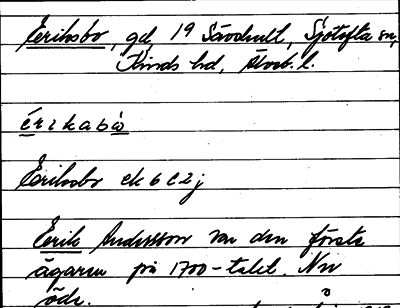 Eriksbo, gd, 19 Sävshult, Sjötofta sn,
Kinds hd, Älvsb. l.
érikabò
Eriksbo ek 6 C 2 j
Erik Andersson var den förste
ägaren på 1700-talet. Nu
öde.